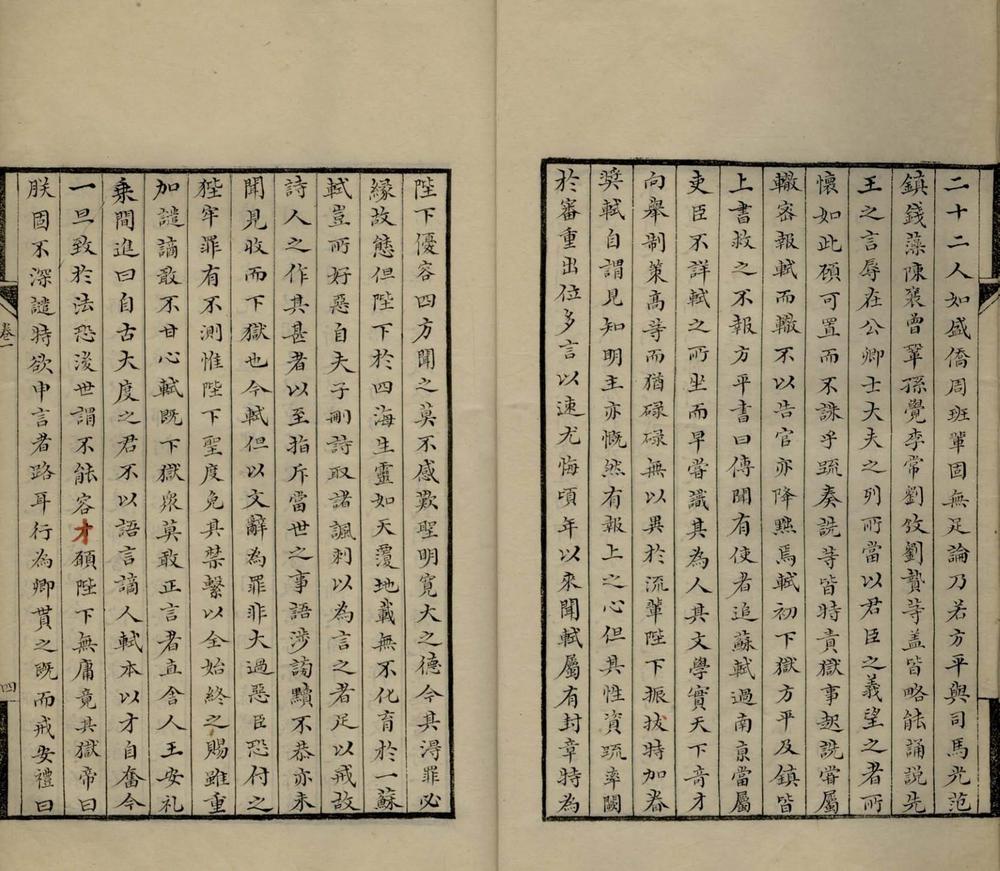 二十二人如盛僑周班輩固無足論乃若方平與司馬光范
鎮錢藻陳襄曾鞏孫覺李常劉攽劉摯等盖皆略能誦說先
王之言辱在公卿士大夫之列所當以君臣之義望之者所
懷如此碩可置而不誅乎疏奏詵等皆特責獄事起詵嘗屬
轍宻報軾而轍不以告官亦降黜焉軾初下獄方平及鎮皆
上書救之不報方平書曰傳聞有使者追蘇軾過南京當屬
吏臣不詳軾之所坐而早嘗識其為人其文學實天下竒才
向舉制策髙等而猶碌碌無以異於流輩陛下振拔特加眷
奬軾自謂見知明主亦慨然有報上之心但其性資疏率闕
於審重出位多言以速尤悔頃年以來聞軾屬有封章特為
陛下優容四方聞之莫不感歎聖明寛大之德今其得罪必
緣故態但陛下於四海生靈如天覆地載無不化育於一蘇
軾豈所好惡自夫子刪詩取諸諷刺以為言之者足以戒故
詩人之作其甚者以至指斥當世之事語涉謗黷不恭亦未
聞見收而下獄也今軾但以文辭為罪非大過惡臣恐付之
狴牢罪有不測惟陛下聖度免其禁繫以全始終之賜雖重
加譴謫敢不甘心軾既下獄衆莫敢正言者直舍人王安礼
乗間進曰自古大度之君不以語言謫人軾本以才自奮今
一旦致於法恐後世謂不能容才願陛下無庸竟其獄帝曰
朕固不深譴特欲申言者路耳行為卿貰之既而戒安禮曰
卷一
四